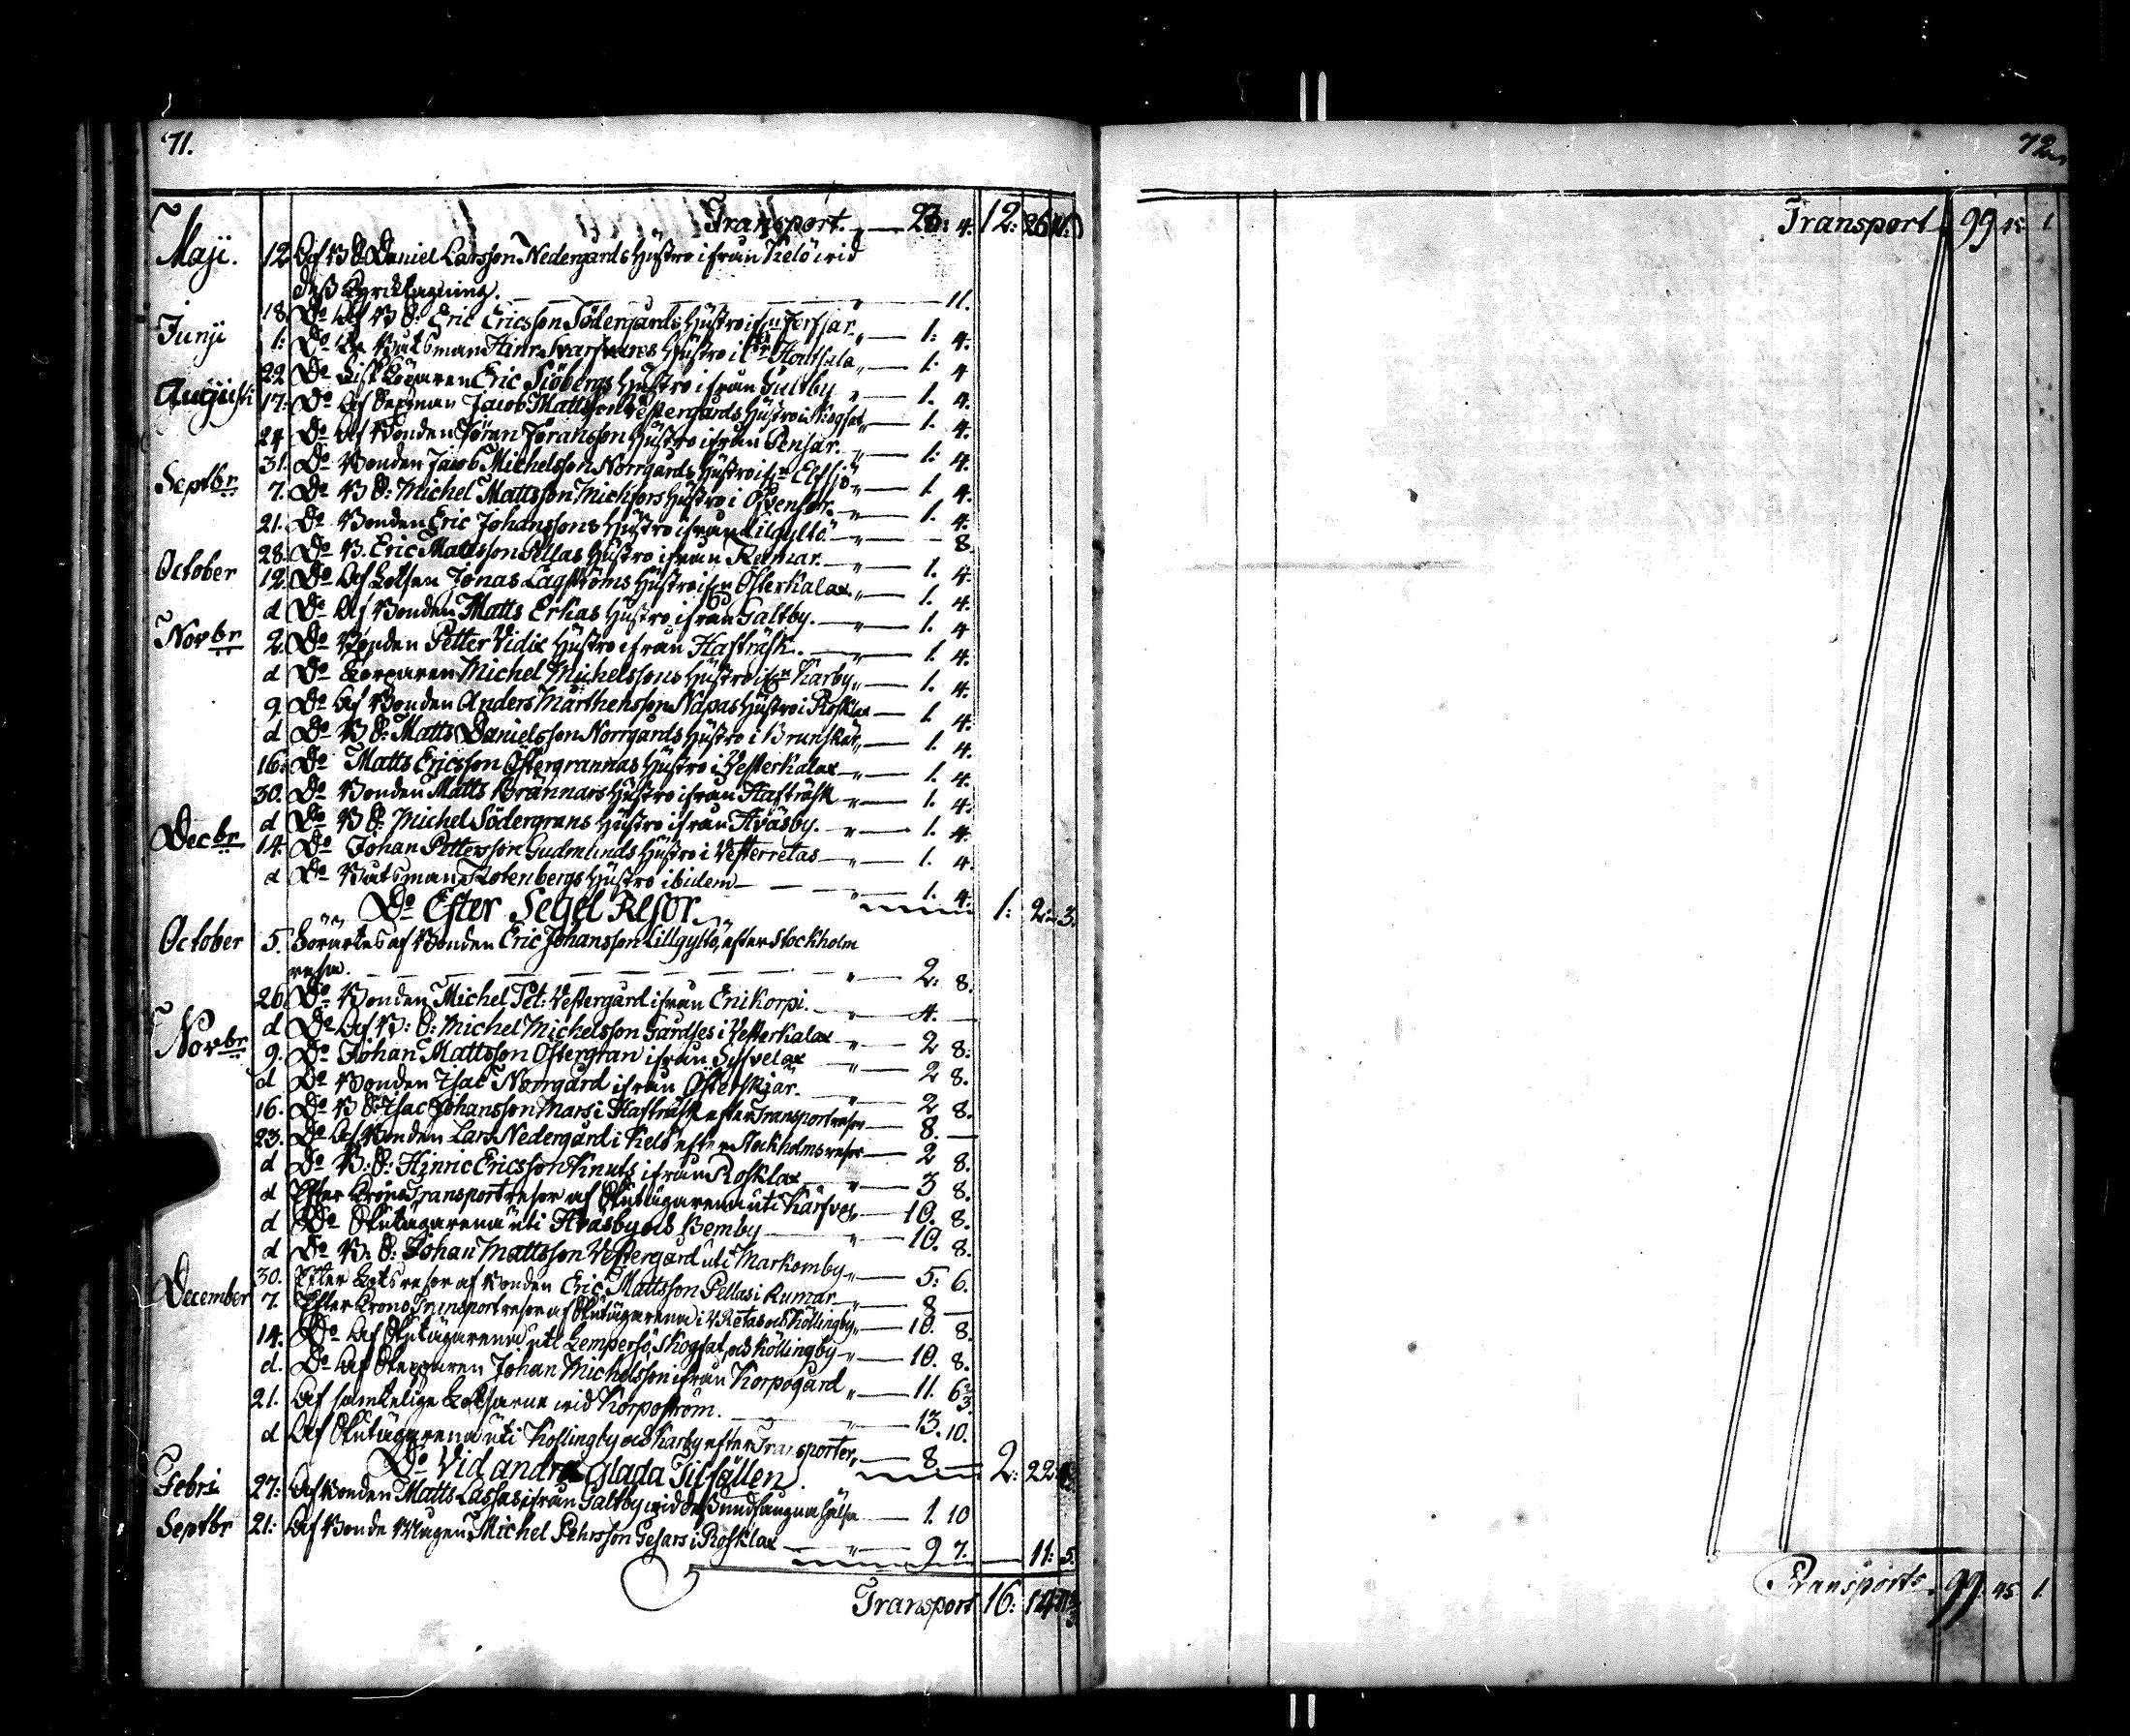 71.
Transport. „ — 23: 4. 12: 26
Maji. 12. Af B S Daniel Larsson Nedergårds Hustro ifrån Kelö wid
dess Kyrktagning. „ — 11.
18. Do Af B S: Eric Ericsson Södergårds Hustro ifrn Jerfsar. „ — 1: 4.
Junji 1: Do Båtsman Hinr. Svarfvares Hustro i Houtsala „ — 1: 4
22. Do Eric Siöbergs Hustro ifrån Galtby „ — 1. 4.
Augusti 17: Do Af Sexman Jacob Mattsson Vestergårds Hustro i Skogsat „ — 1. 4.
24. Do Af Bonden Jöran Jöransson Hustro ifrån Pensar. „ — 1: 4.
31. Do Bonden Jacob Michelsson Norrgårds Hustro ifrn Elfsjö „ — 1 4.
Septbr 7. Do B S: Michel Mattsson Michfors Hustro i Öfvensor. „ — 1. 4.
21. Do Bonden Eric Johanssons Hustro ifrån Lilgyltö „ — 8.
28. Do B. Eric Mattsson Pellas Hustro ifrån Rumar. „ — 1. 4.
October 12. Do Af Lotsen Jonas Lagströms Hustro ifrn Österkalax. „ — 1. 4.
d Do Af Bonden Matts Erkas Hustro ifrån Galtby. „ — 1. 4
Novbr 2. Do Bonden Petter Vidix Hustro ifrån Hafträsk. „ — 1. 4.
d Do Michel Michelssons Hustro ifrn Kärby „ — 1. 4.
9. Do Af Bonden Anders Mårthensson Napas Hustro i Rosklax — 1. 4.
d Do B S: Matts Danielsson Norrgårds Hustro i Brunskär „ — 1. 4.
16. Do Matts Ericsson Östergrannas Hustro i Vesterkalax „ — 1. 4.
30. Do Bonden Matts Brännars Hustro ifrån Hafträsk „ — 1. 4.
d Do B S: Michel Södergrans Hustro ifrån Hväsby. „ — 1. 4.
Decbr 14. Do Johan Pettersson Gudmunds Hustro i Vesterretas „ — 1. 4.
d Do Båtsman Rotenbergs Hustro ibidem „ — 1. 4. 1: 2 3.
Do Efter Segel Resor.
October 5. Förärtes af Bonden Eric Johansson Lillgyltö, efter Stockholm
resa. „ — 2: 8.
26. Do Bonden Michel Pet: Vestergård ifrån Enikorpi. „ — 4. —
d Do Af B: S: Michel Michelsson Gardses i Vesterkalax „ — 2 8.
Novbr 9. Do Johan Mattsson Östergran ifrån Syfvelax „ — 2 8.
d Do Bonden Isac Norrgård ifrån Österskjär. „ — 2 8.
16. Do B S: Isac Johansson Mars i Hafträsk efter Transportresor — 8. —
23. Do Af Bonden Lars Nedergård i Kelö efter Stockholms resor — 2 8.
d Do B: S: Hinric Ericsson Knuts ifrån Rosklax „ — 3 8.
d Efter Krono Transportresor af Skutägarena uti Kärfves „ — 10. 8.
d Do Skutägarena uti Hväsby och Bemby „ — 10. 8.
d Do B: S: Johan Mattsson Vestergård uti Markomby „ — 5: 6.
30. Efter Lotsresor af Bonden Eric Mattsson Pellas i Rumar „ — 8 —
December 7. Efter Krono Transportresor af Skutägarena i V Retas och Köllingby „ — 10. 8.
14. Do Af Skutägarena uti Lempersö, Skogsat, och Köllingby „ — 10. 8.
d. Do Af Skepparen Johan Michelsson ifrån Korpogård „ — 11. 6 2/3
21. Af samtelige Lotsarne wid Korpoström. „ — 13. 10.
d Af Skutägarena uti Köllingby och Kärby efter Transporter „ — 8. — 2: 22:
Do Vid andra Glada Tilfällen.
Febri. 27: Af Bonden Matts Lassas ifrån Galtby wid dess undfångna hälsa — 1. 10
Septbr 21: Af Bonde Magen Michel Pehrsson Gesars i Rosklax „ — 9 7. — 11: 5.
Transport 16: 14
72
Transport. 99 45 1
Transport. 99 45 1.